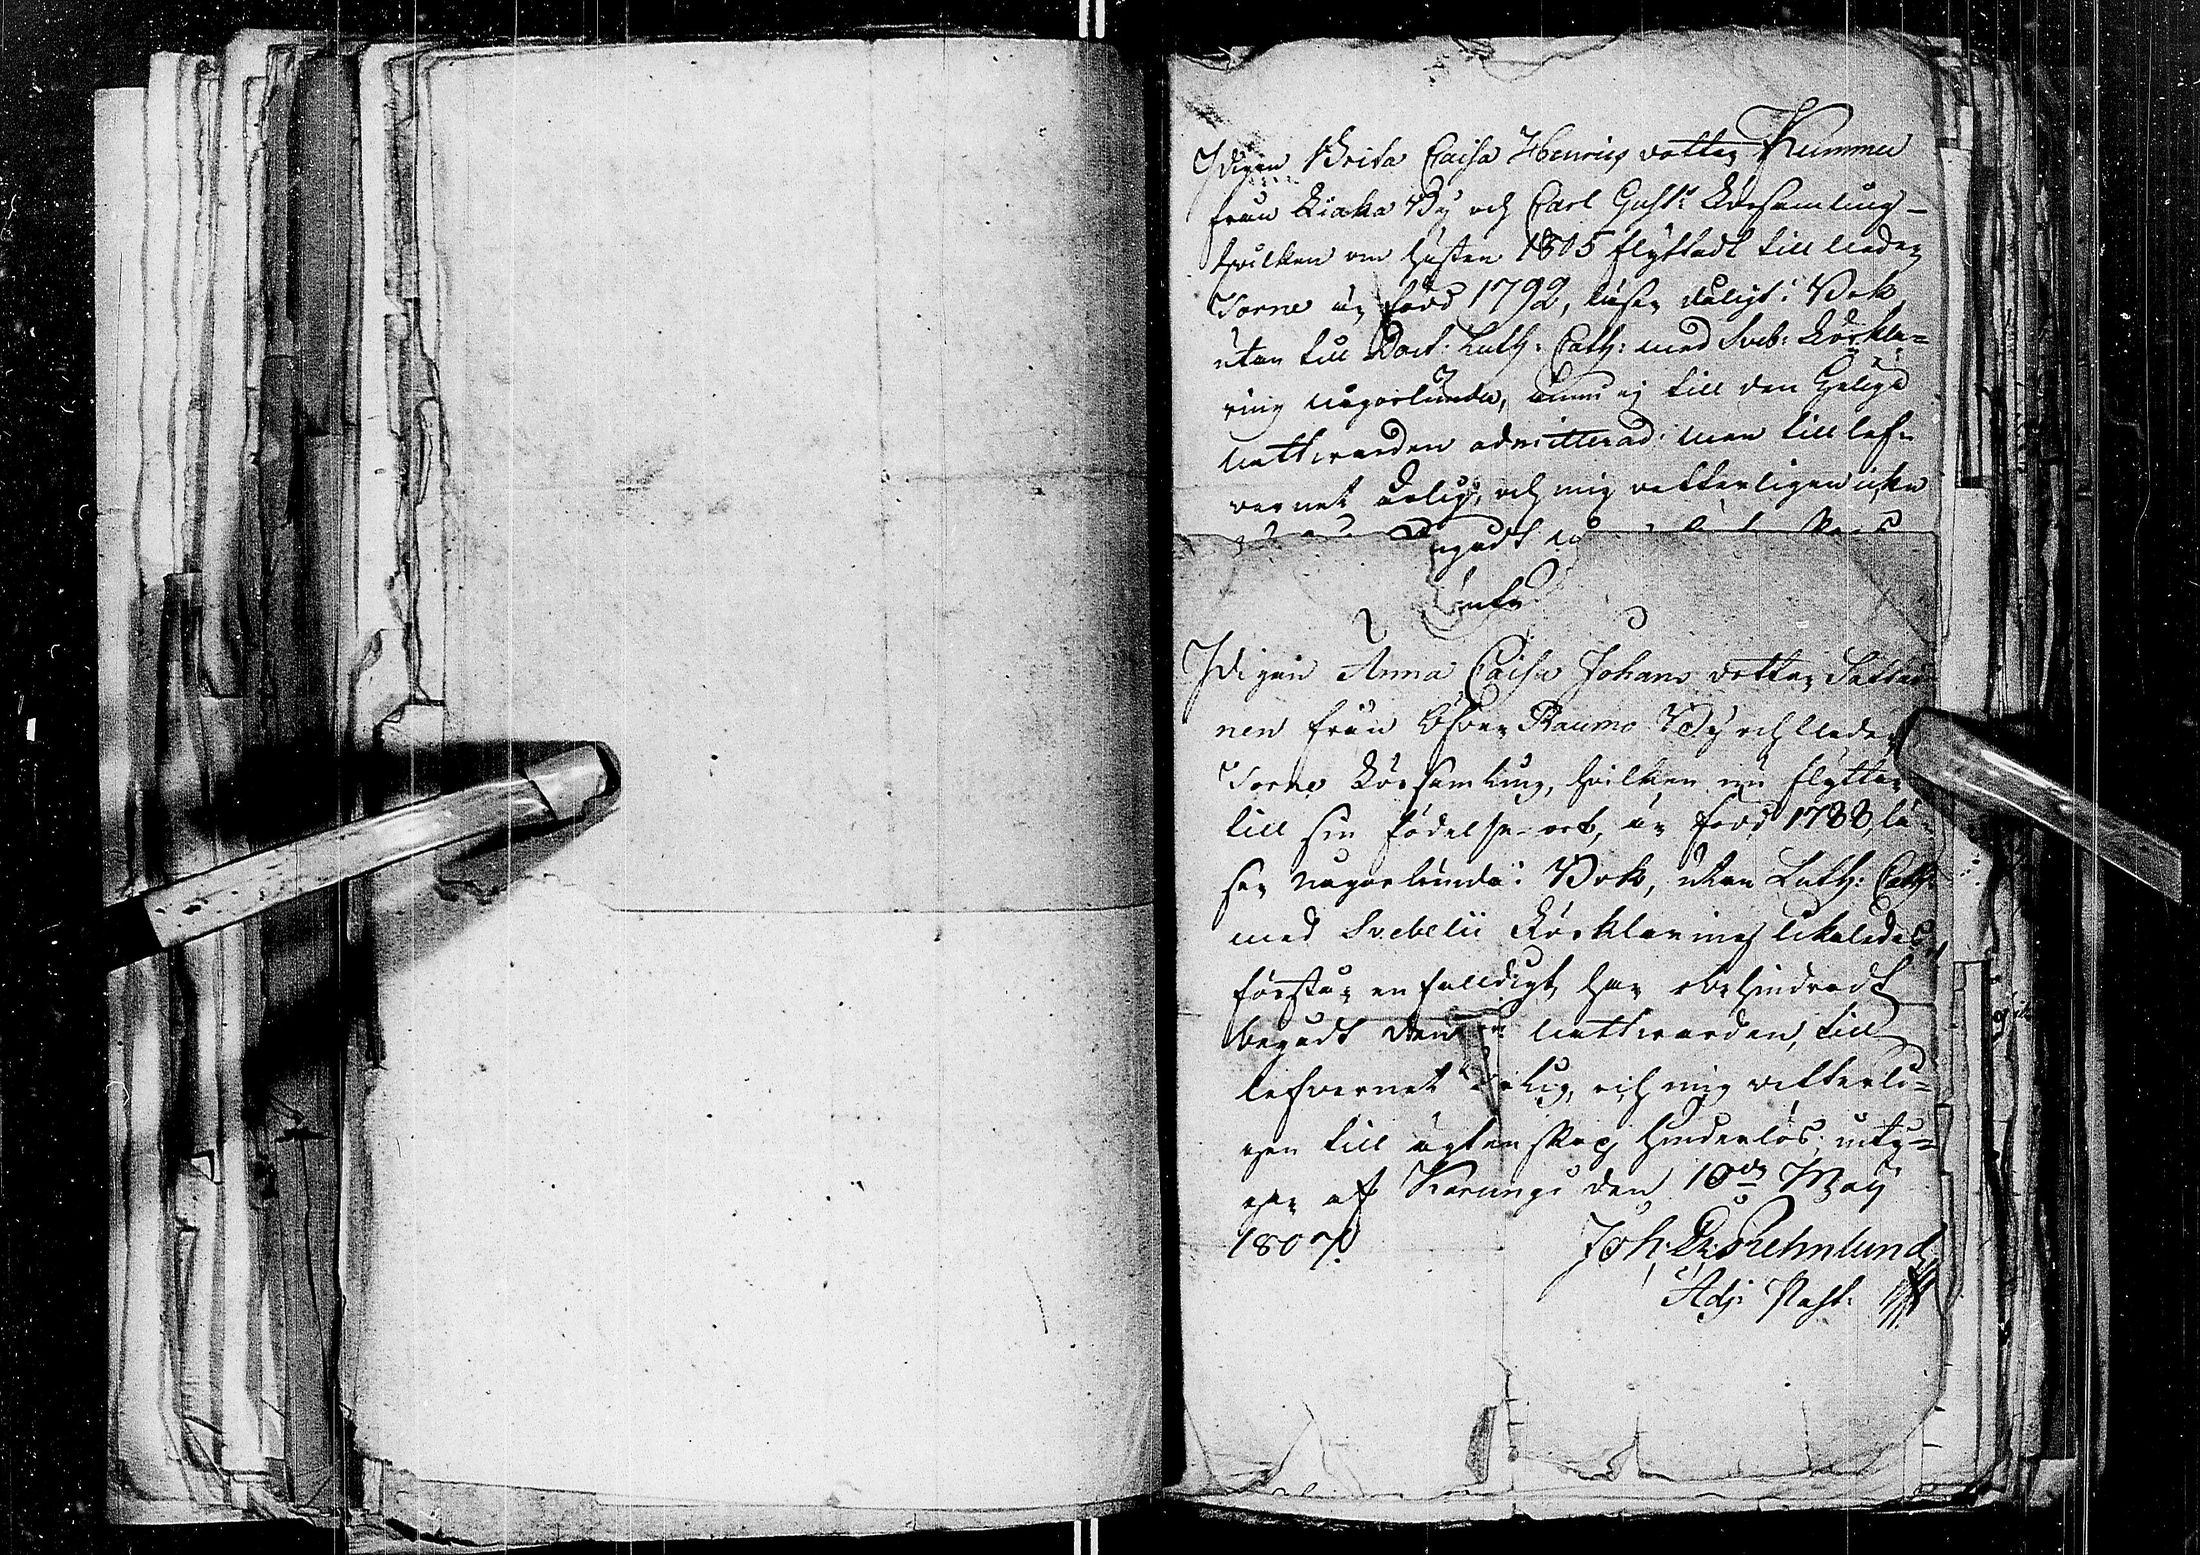 Pigan Brita Caisa Henrics dotter Kummu
från Kiaka By och Carl Gust: Församling
hvilken om hösten 1805 flyttadt till Neder
Torne är född 1792, läser daligt i Bok
utan till Doct: Luth: Cath: med Sveb: Förkla=
ring någorlunda, ännu ej till den Helige
Nattvarden admitterad: men till lef-
vernet ärlig, och mig vetterligen icke
Pigan Anna Caisa Johans dotter
nen från Öfver Raumo By och Neder
Torne Församling, hvilken nu flyttar
till sin födelse-ort, är född 1788, lä-
ser någorlunda i Bok, utan Luth: Cath:
med Svebelii Förklaring likaledes,
förstår enfalldigt, har obehindradt
begådt den Nattvarden, till
lefvernet ärlig, och mig vetterli=
gen till ägtenskap hinderlös; inty=
gar af Karungi den 10de Maij
1807.
Joh: Rehnlund
Adj: Past: